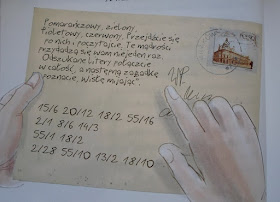 Pomarańczowy, zielony,
fioletowy, czerwony. Przejdźcie się
po nich i poczytajcie. Te mądrości
przydadzą się wam niejeden raz.
Odszukane litery połączcie
w całość, a następną zagadkę
poznacie, Wisłę mijając".
15/6 20/12 18/2 55/16
2/1 8/6 14/3
55/1 18/2
2/28 55/10 13/2 18/10